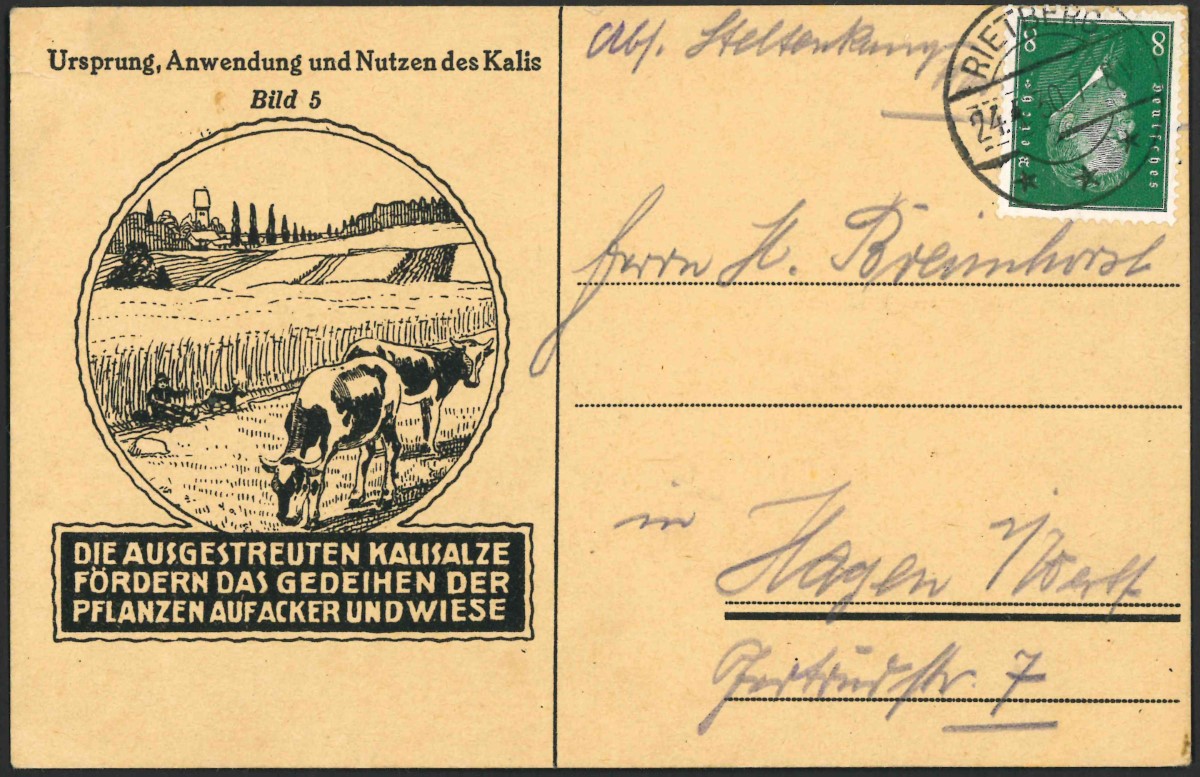 Ursprung, Anwendung und Nutzen des Kalis
Bild 5
DIE AUSGESTREUTEN KALISALZE
FÖRDERN DAS GEDEIHEN DER
PFLANZEN AUF ACKER UND WIESE
Abs. Steltenkamp
RIETBERG
24.
8 8
Deutsches
Reich
Herrn H. Breimhorst
in Hagen i/Westf
Gertrudstr. 7